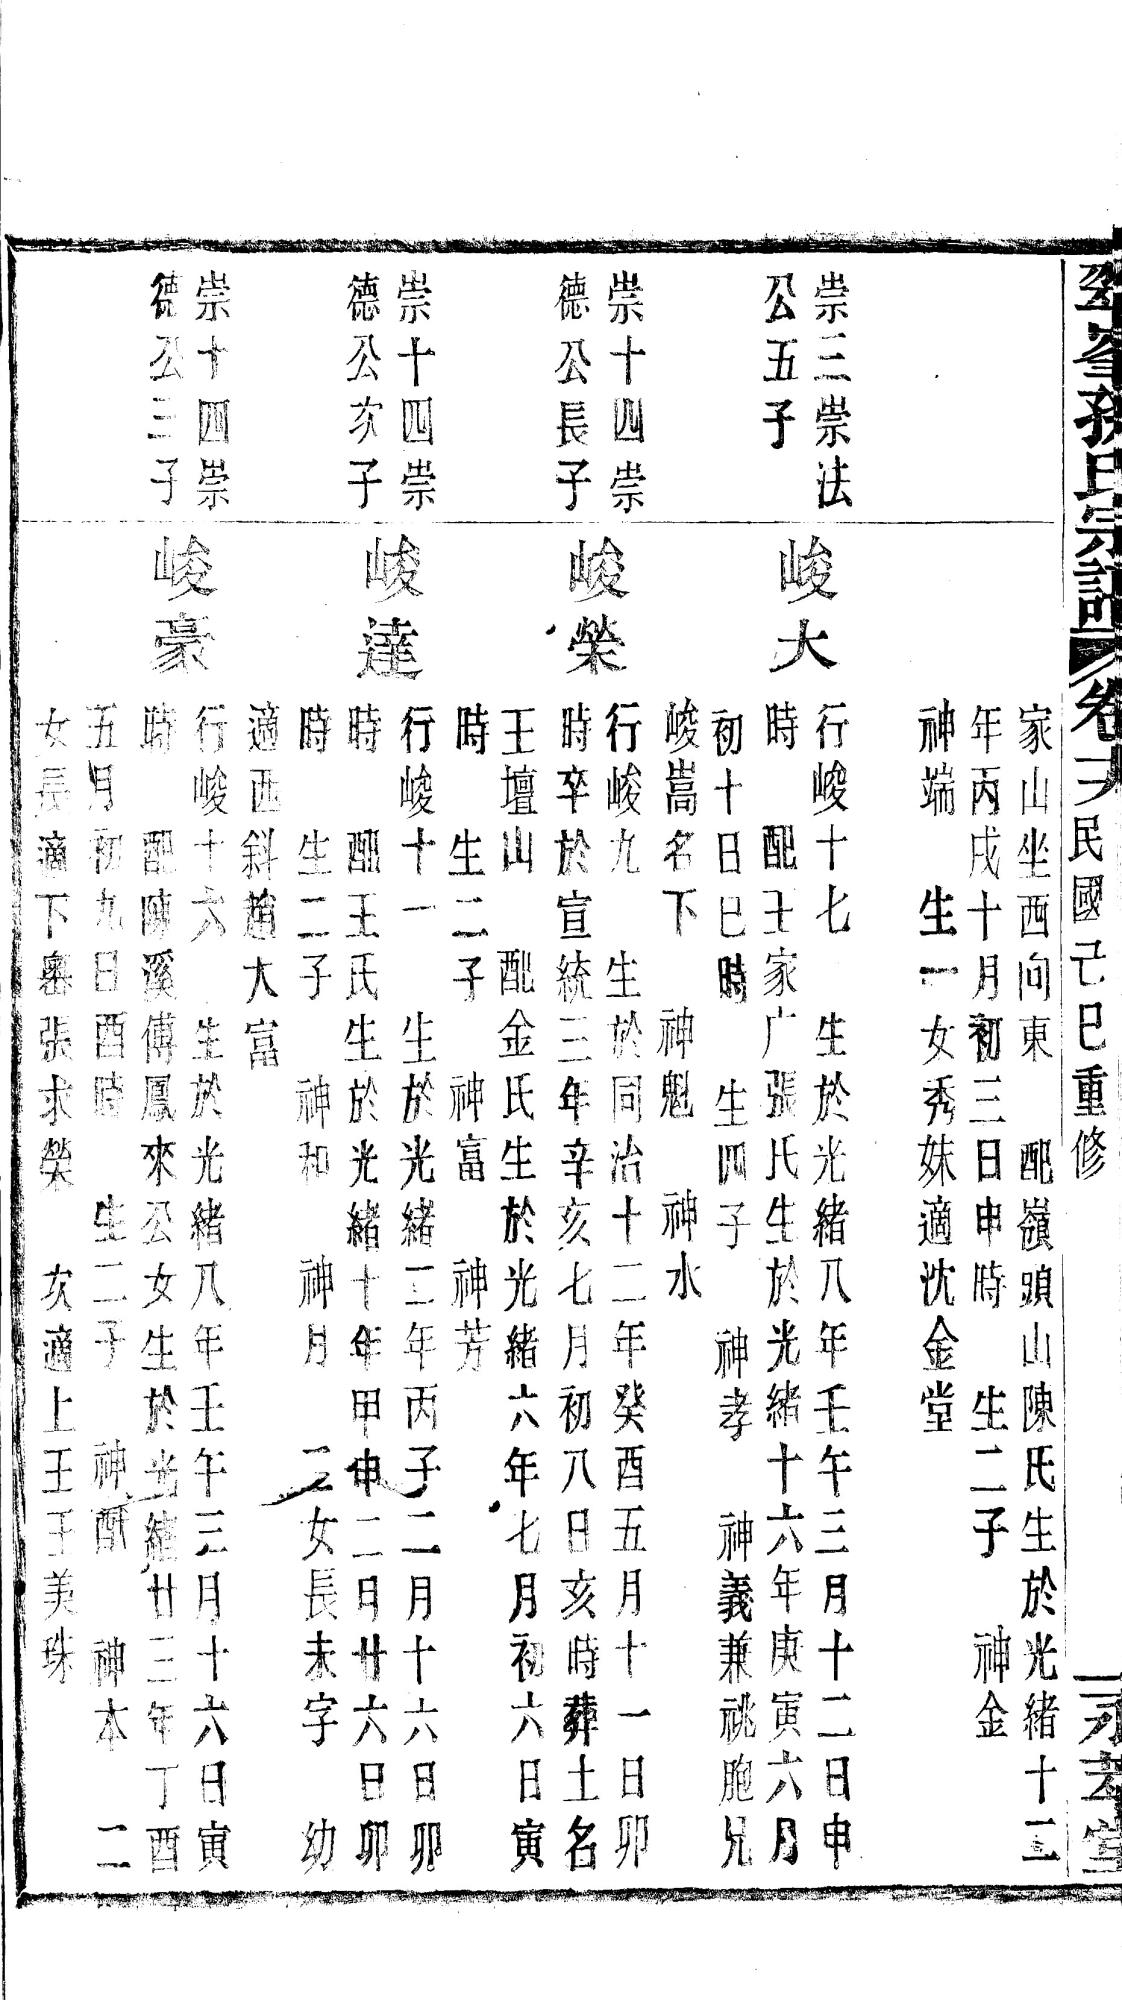 孫氏宗譜 卷 民國己巳重修
孝堂
家山坐酉向東 配嶺頭山陳氏生於光緒十二
年丙戌十月初三日申時 生二子 神金
神端 生一女秀妹適沈金堂
崇三崇法
公五子
峻大
行峻十七 生於光緒八年壬午三月十二日申
時 配王家广張氏生於光緒十六年庚寅六月
初十日巳時 生四子 神孝 神義兼祧胞兄
峻嵩名下 神魁 神水
崇十四崇
德公長子
峻榮
行峻九 生於同治十二年癸酉五月十一日卯
時卒於宣統三年辛亥七月初八日亥時葬土名
王壇山 配金氏生於光緒六年七月初六日寅
時 生二子 神富 神芳
崇十四崇
德公次子
峻達
行峻十一 生於光緒二年丙子二月十六日卯
時 配王氏生於光緒十年甲申二日廿六日卯
時 生二子 神和 神月 二女長未字 幼
適西斜趙大富
崇十四崇
德公三子
峻豪
行峻十六 生於光緒八年壬午三月十六日寅
時 配陳溪傅鳳來公女生於光緒廿三年丁酉
五月初九日酉時 生二子 神猷 神本 二
女長適下嶴張求榮 次適上王王美珠